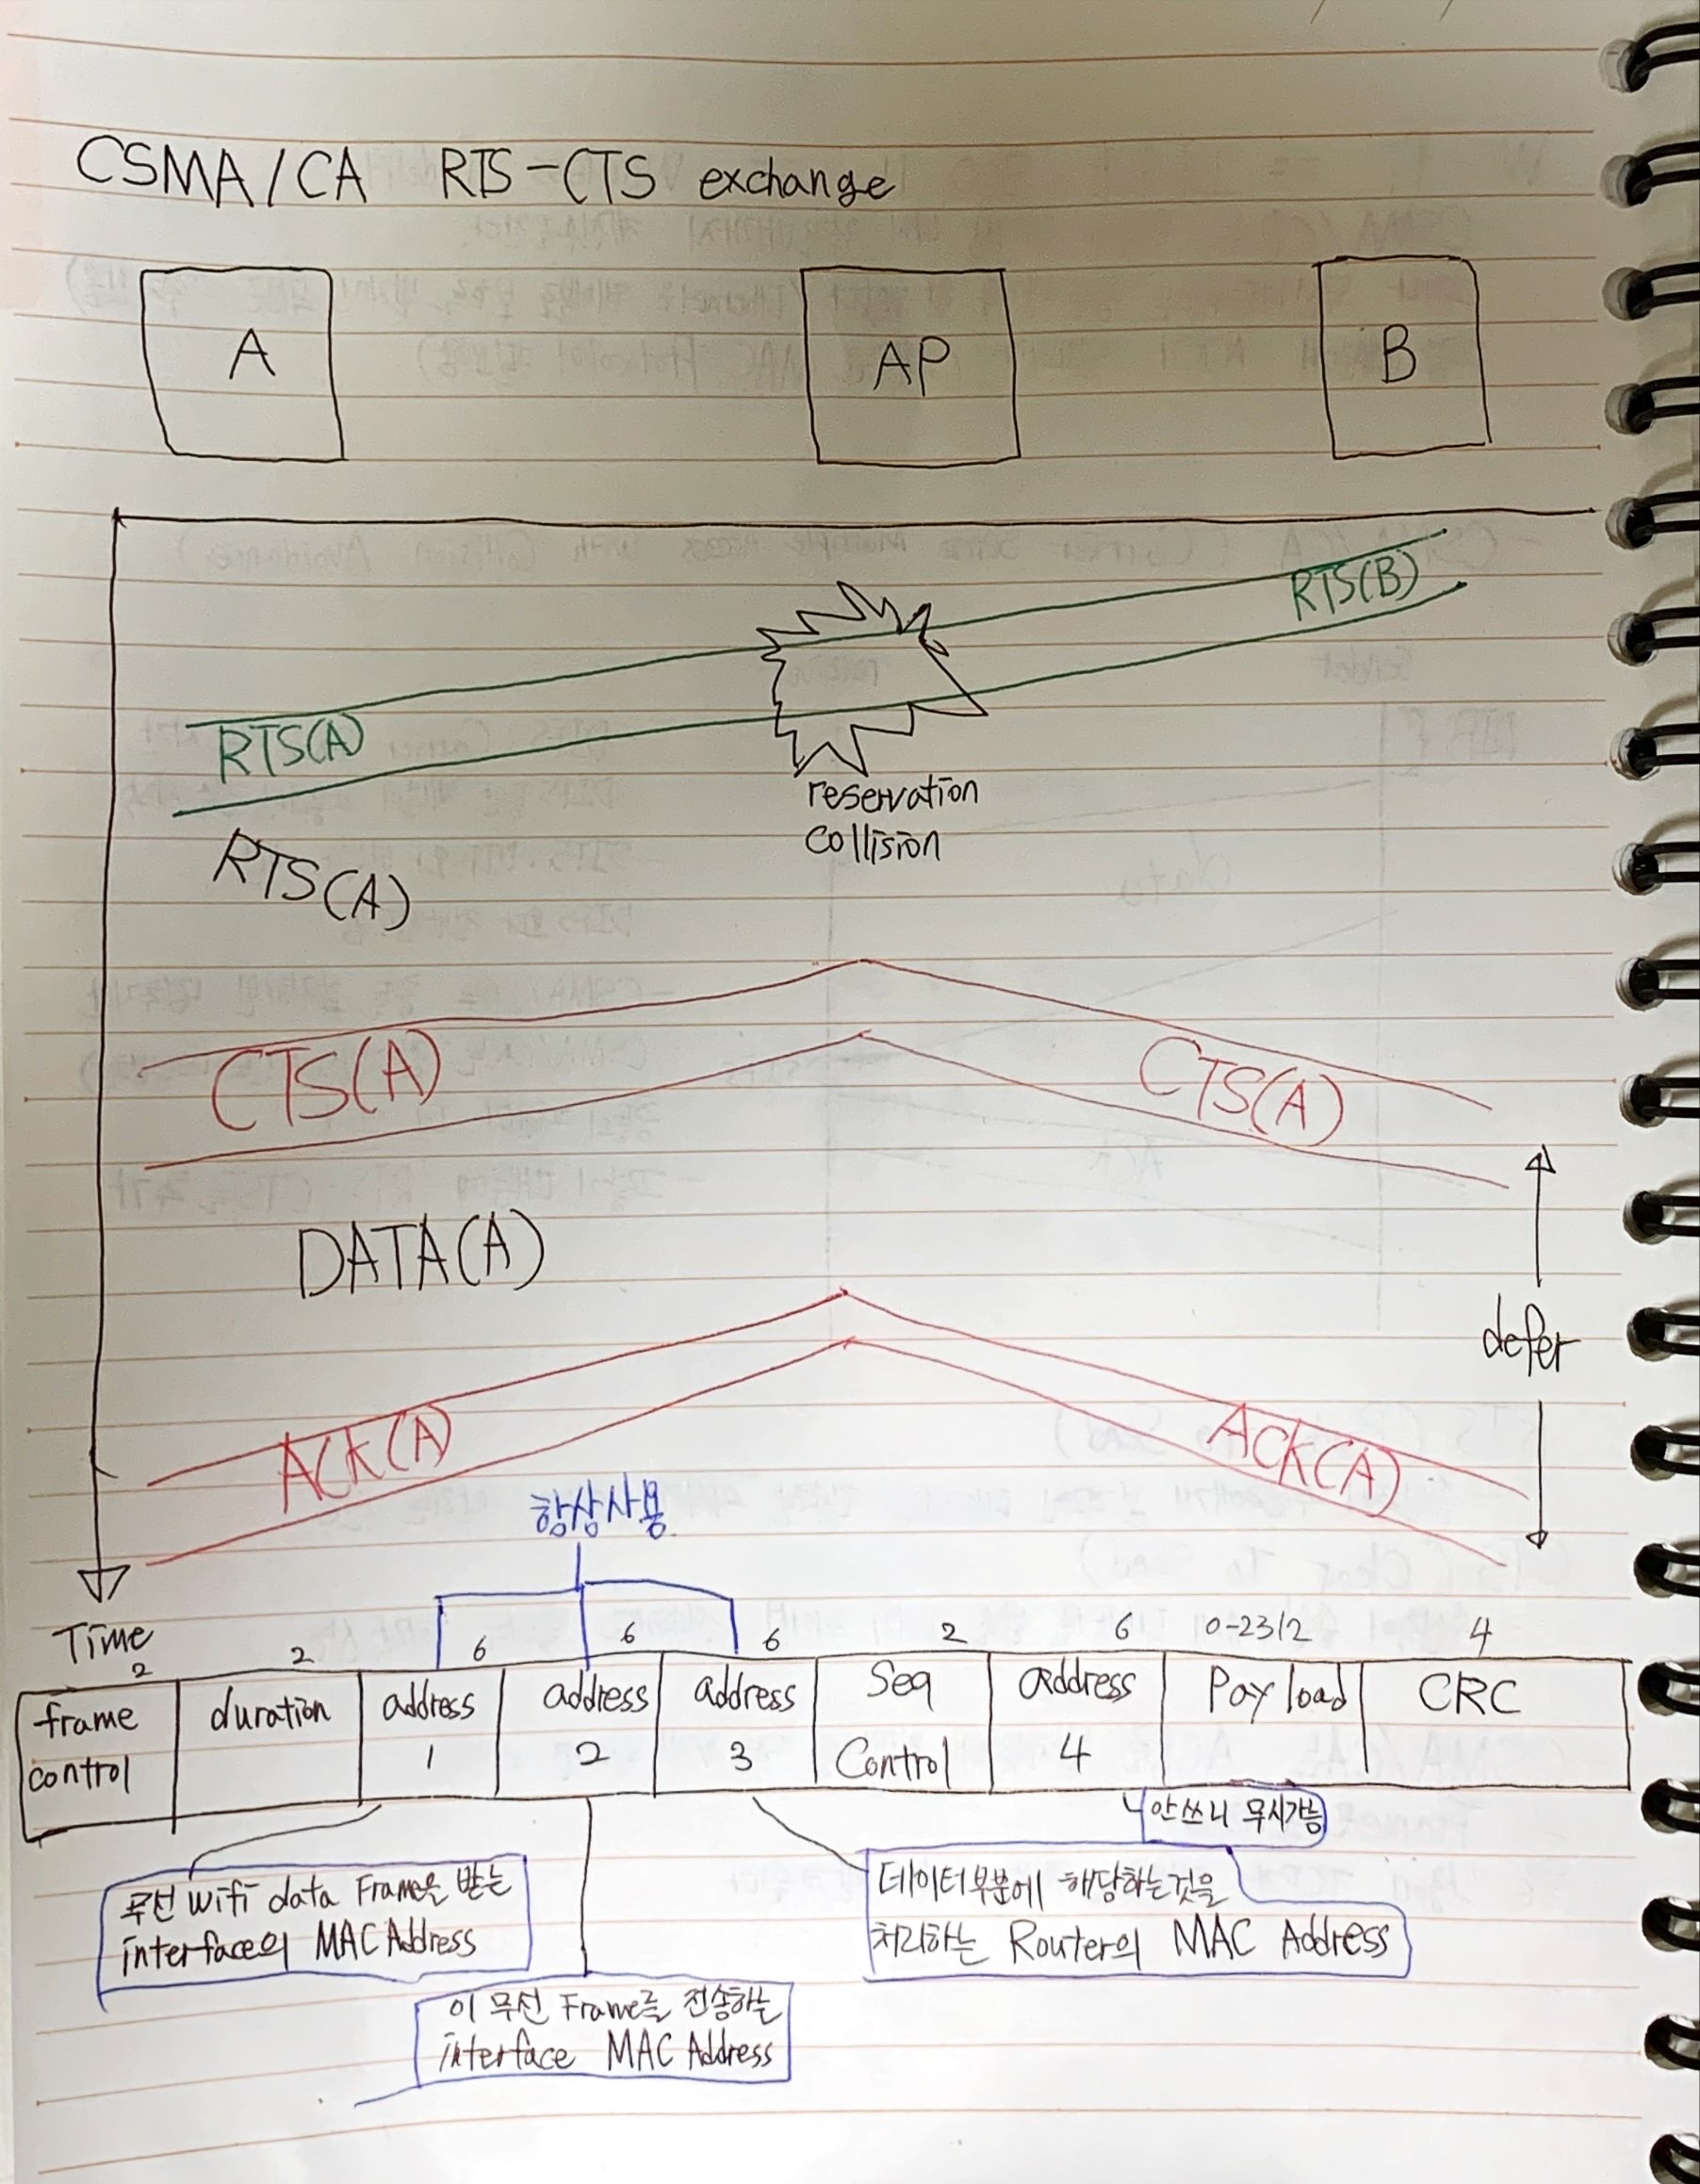 CSMA/CA RTS-CTS exchange
A AP B
RTS(B)
RTS(A)
reservation
collision
RTS(A)
CTS(A) CTS(A)
DATA(A)
defer
ACK(A) ACK(A)
항상사용
Time
2 2 6 6 6 2 6 0-2312 4
frame control
duration
address 1
address 2
address 3
Seq Control
address 4
Payload
CRC
안쓰니 무시가능
무선 wifi data Frame을 받는
interface의 MAC Address
데이터부분에 해당하는것을
처리하는 Router의 MAC Address
이 무선 Frame를 전송하는
interface MAC Address